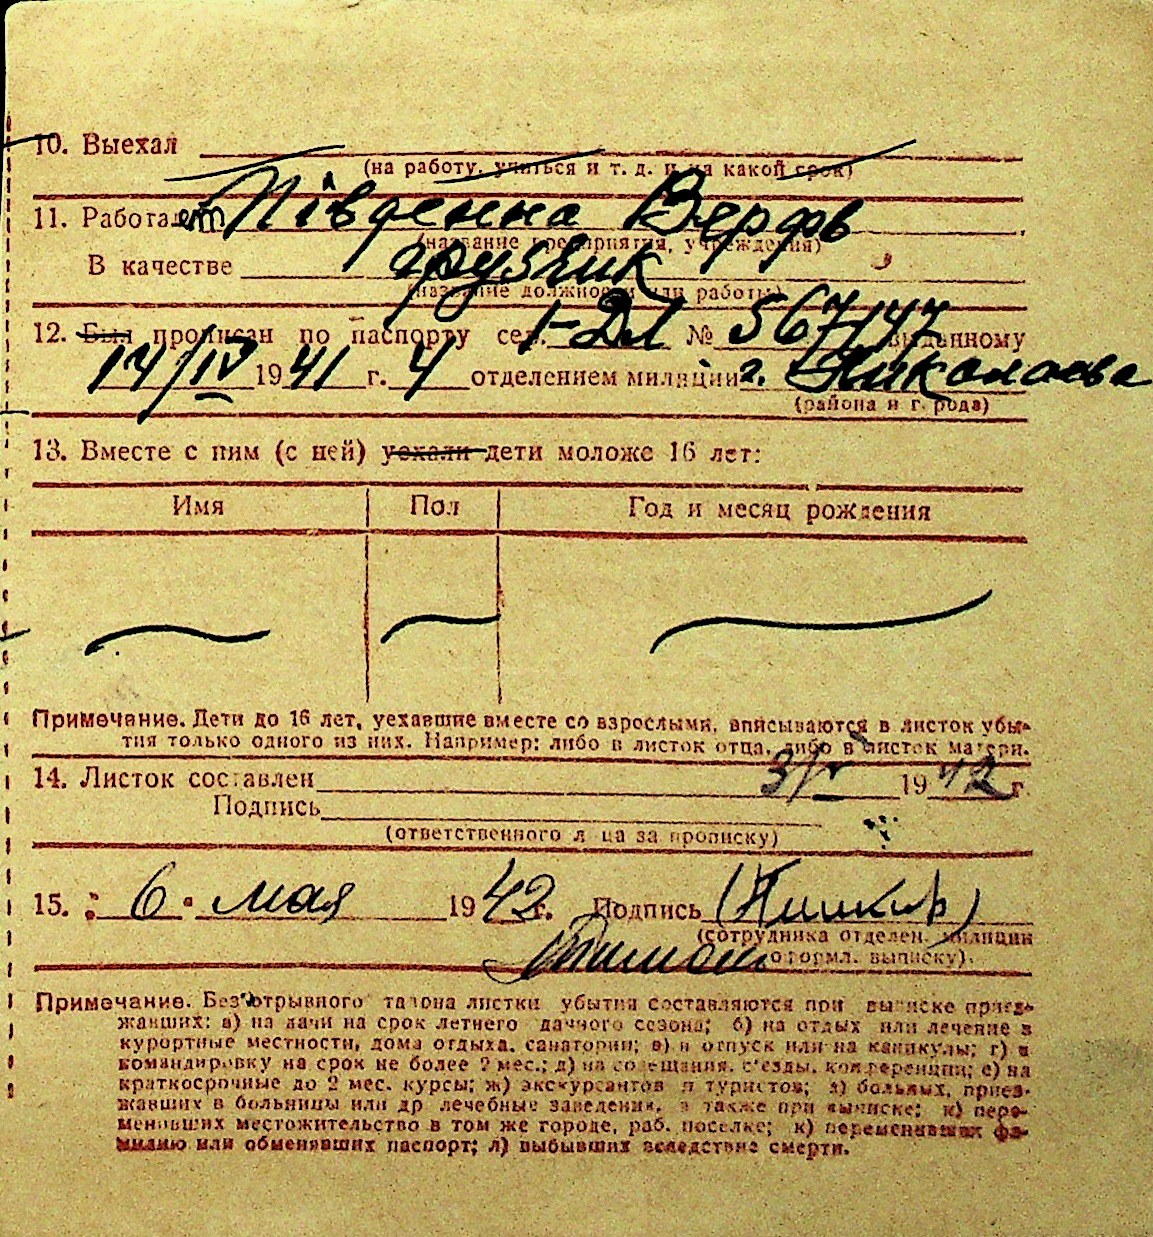 10. Выехал
(на работу, учиться и т. д. и на какой срок)
11. Работает Південна Верфь
(название предприятия, учреждения)
В качестве грузчик
(название должности или работы)
12. Был прописан по паспорту сер. 1-ДЛ № 567147 выданному
14/IV 1941 г. 4 отделением милиции г. Николаева
(района и города)
13. Вместе с ним (с ней) уехали дети моложе 16 лет:
Имя Пол Год и месяц рождения
Примечание. Дети до 16 лет, уехавшие вместе со взрослыми, вписываются в листок убы-
тия только одного из них. Например: либо в листок отца, либо в листок матери.
14. Листок составлен 3/V 1942 г.
Подпись
(ответственного лица за прописку)
15. 6 мая 1942 г. Подпись
(сотрудника отделен. милиции
оформл. выписку).
Примечание. Без отрывного талона листки убытия составляются при выписке приез-
жавших: а) на дачи на срок летнего дачного сезона; б) на отдых или лечение в
курортные местности, дома отдыха, санатории; в) в отпуск или на каникулы; г) в
командировку на срок не более 2 мес.; д) на совещания, съезды, конференции; е) на
краткосрочные до 2 мес. курсы; ж) экскурсантов и туристов; з) больных, приез-
жавших в больницы или др лечебные заведения, а также при выписке; и) пере-
менивших местожительство в том же городе, раб. поселке; к) переменивших фа-
милию или обменявших паспорт; л) выбывших вследствие смерти.